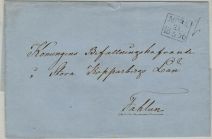 Konungens Befallningshafvande
i Stora Kopparbergs Län
Fahlun